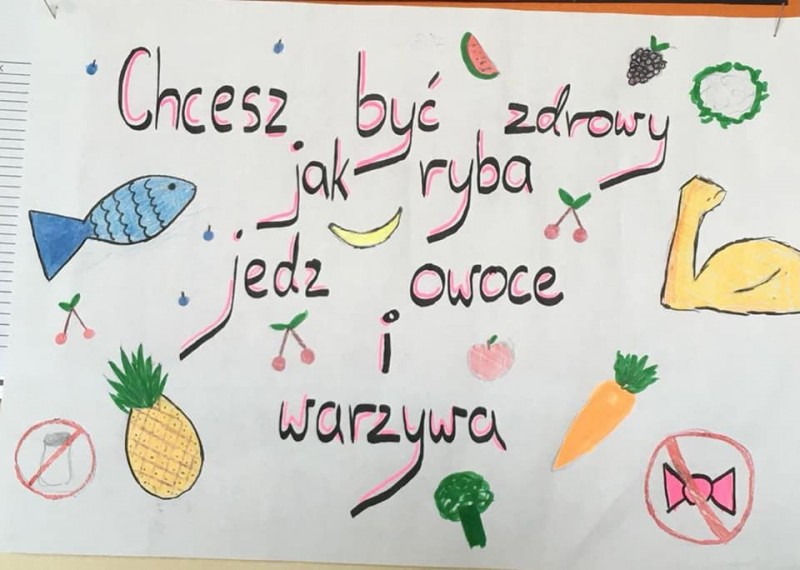 Chcesz być zdrowy
jak ryba
jedz owoce
i
warzywa